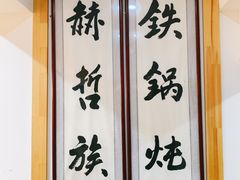 铁锅炖
赫哲族